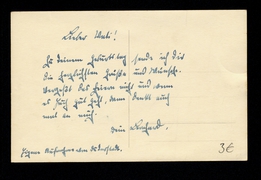 Lieber Mucki!
Zu deinem Geburtstag sende ich dir
die herzlichsten Grüße und Wünsche.
Vergeßt das Feiern nicht und wenn
es Euch gut geht, dann denkt auch
mal an mich.
Dein Bernhard.
Eigene Aufnahme von
3€